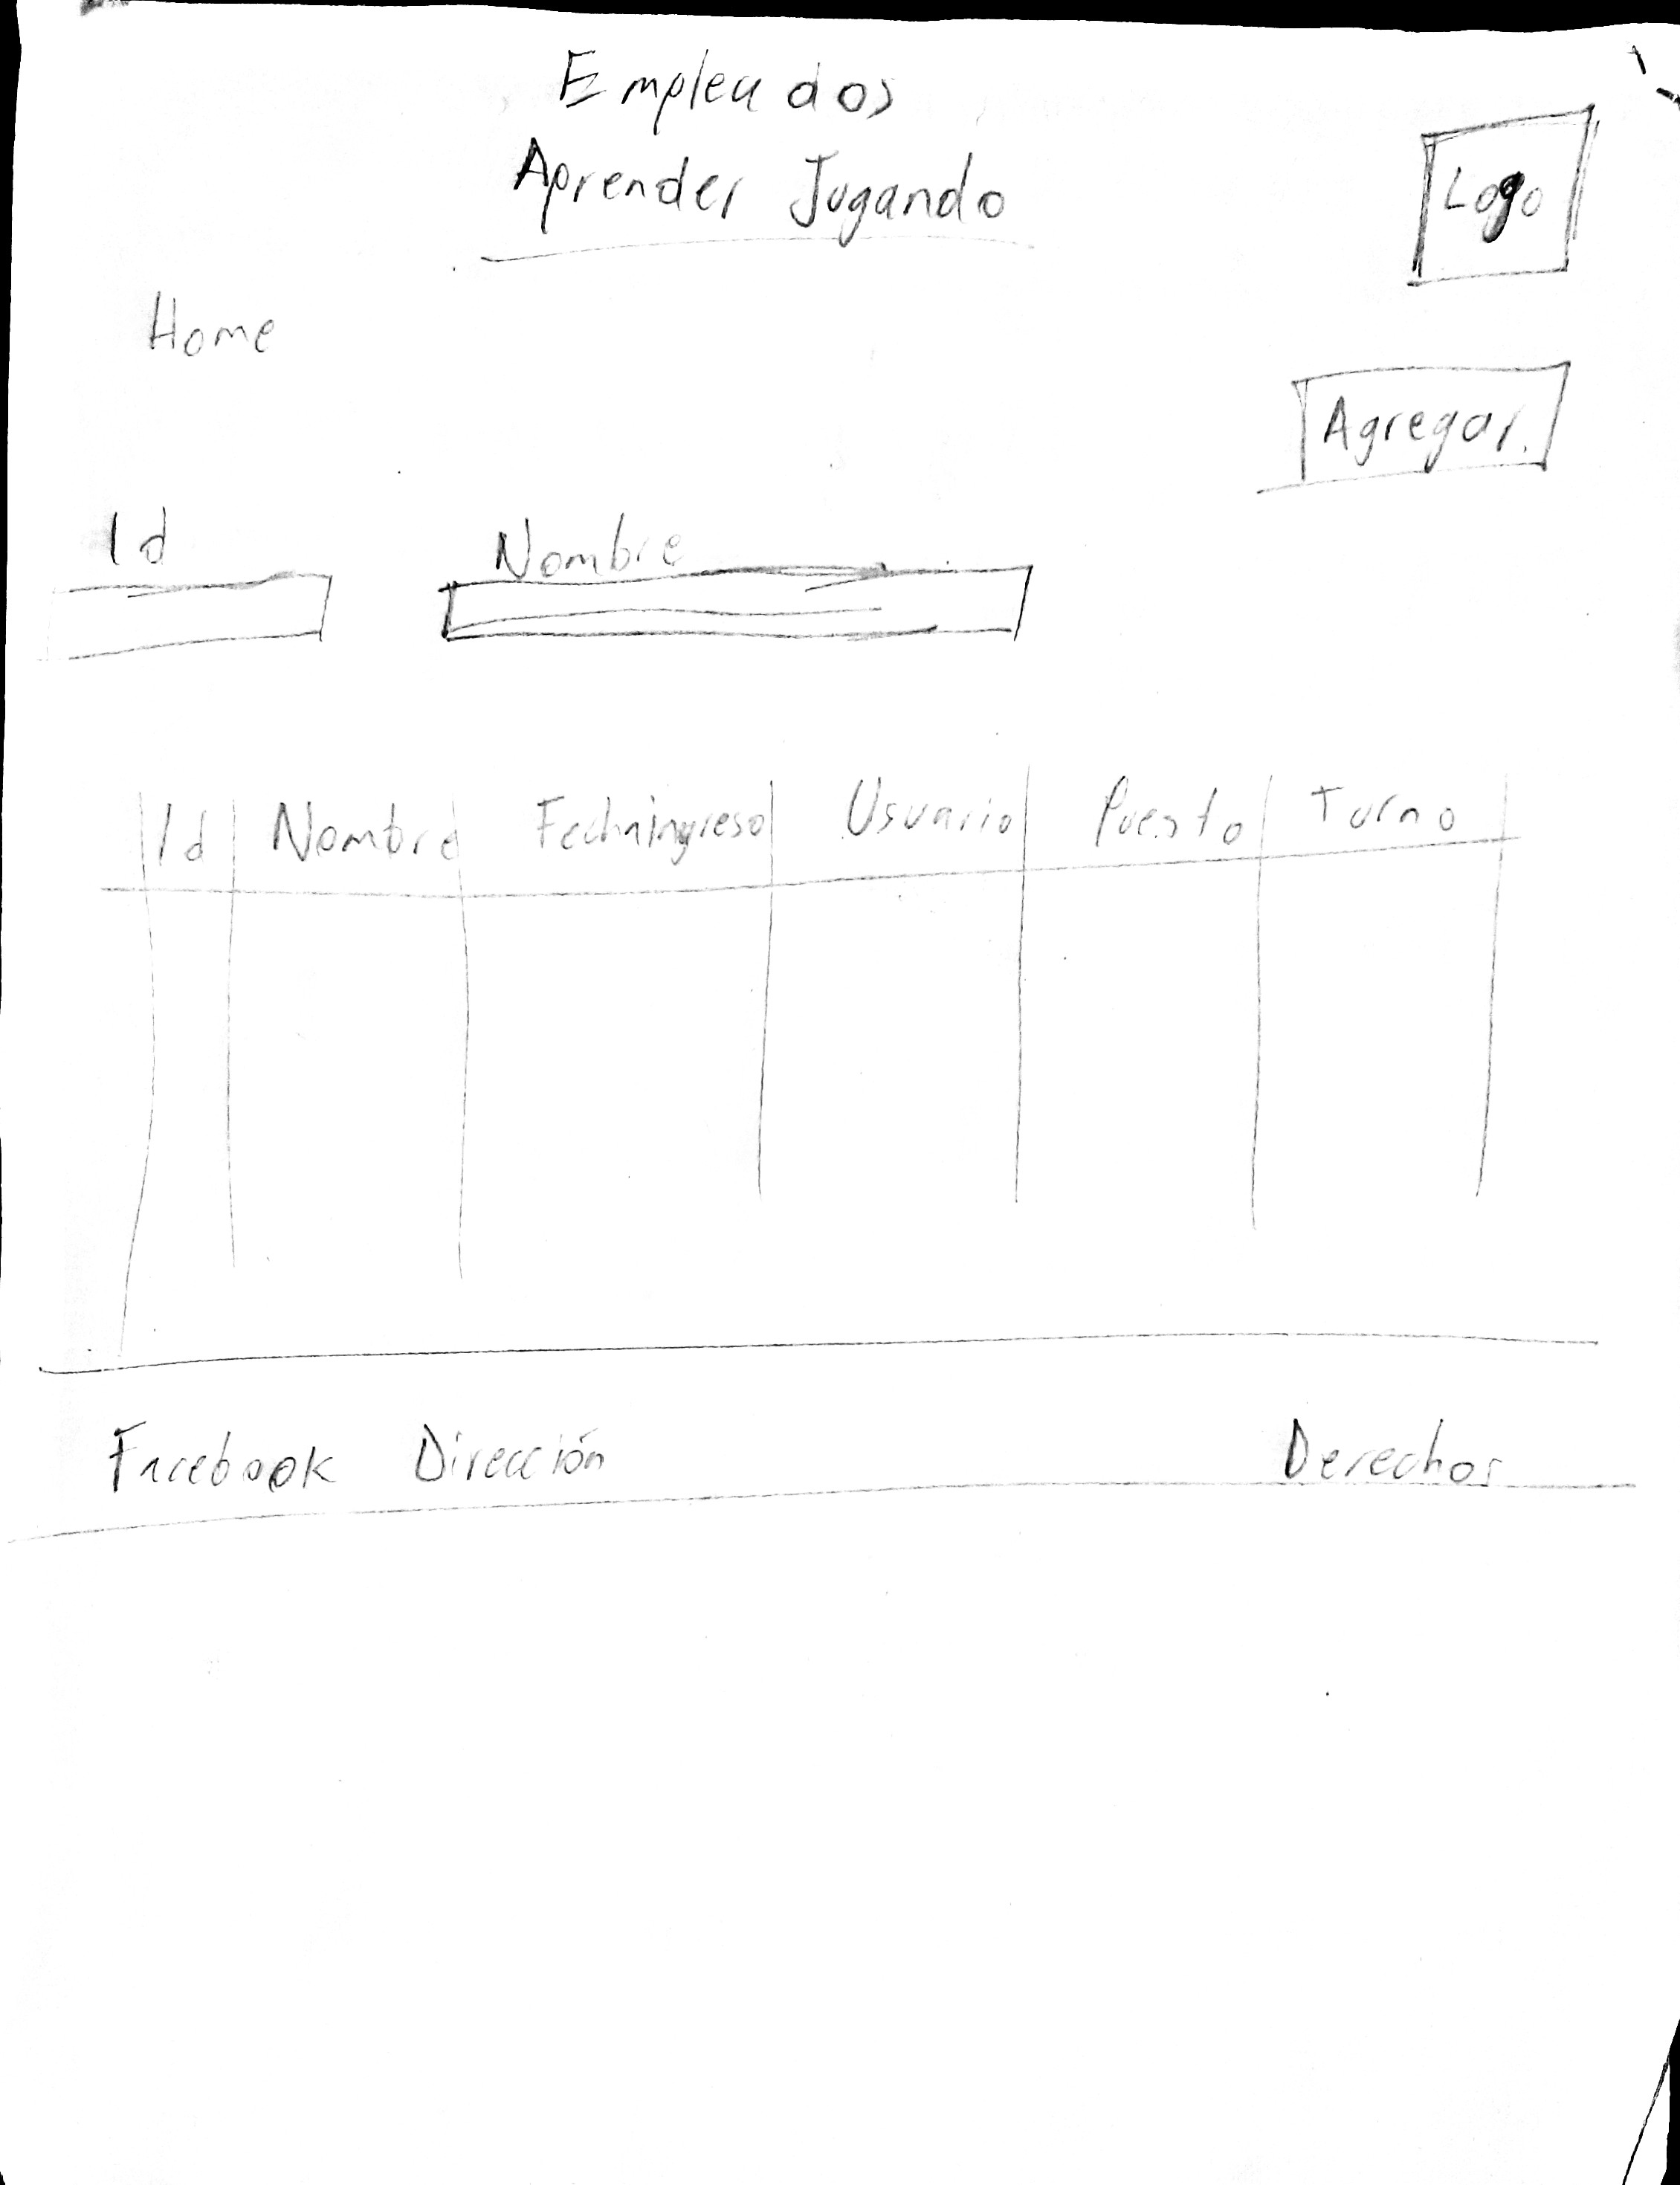 Empleados
Aprender Jugando
Logo
Home
Agregar.
Id Nombre
Id Nombre Fechaingreso Usuario Puesto Turno
Facebook Dirección Derechos